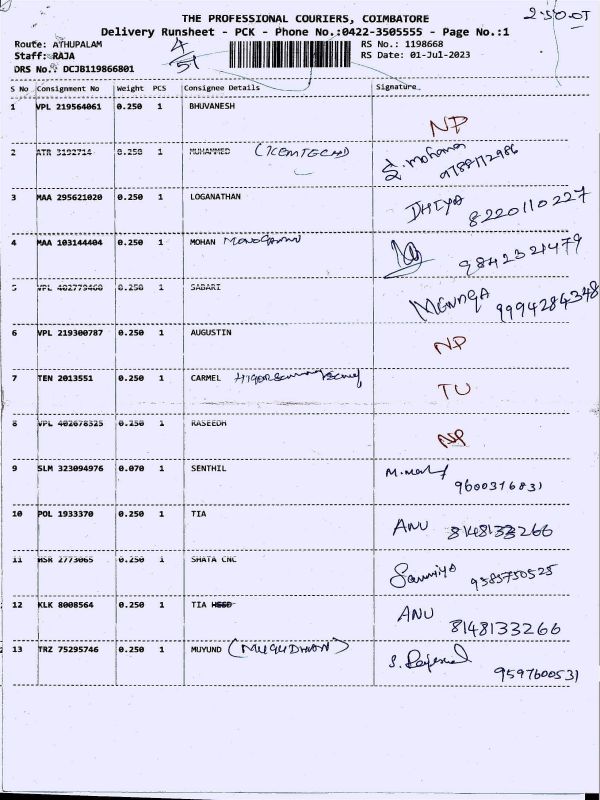 THE PROFESSIONAL COURIERS, COIMBATORE
2.50.05
Delivery Runsheet - PCK - Phone No.:0422-3505555 - Page No.:1
Route: ATHUPALAM
4/51
RS No.: 1198668
Staff: RAJA
RS Date: 01-Jul-2023
DRS No.: DCJB119866801
S No Consignment No Weight PCS Consignee Details Signature
1 VPL 219564061 0.250 1 BHUVANESH NP
2 ATR 3192714 0.250 1 MUHAMMED 9788172986
3 MAA 295621020 0.250 1 LOGANATHAN DHIYA 8220110227
4 MAA 103144404 0.250 1 MOHAN 9842321479
5 VPL 402779460 0.250 1 SABARI 9994284348
6 VPL 219300787 0.250 1 AUGUSTIN NP
7 TEN 2013551 0.250 1 CARMEL TU
8 VPL 402678325 0.250 1 RASEEDH NP
9 SLM 323094976 0.070 1 SENTHIL 9600316831
10 POL 1933370 0.250 1 TIA ANU 8148133266
11 HSR 2773065 0.250 1 SHATA CNC Sowmiya 9585750525
12 KLK 8008564 0.250 1 TIA ANU 8148133266
13 TRZ 75295746 0.250 1 MUYUND (MUGUDHAN) 9597600531